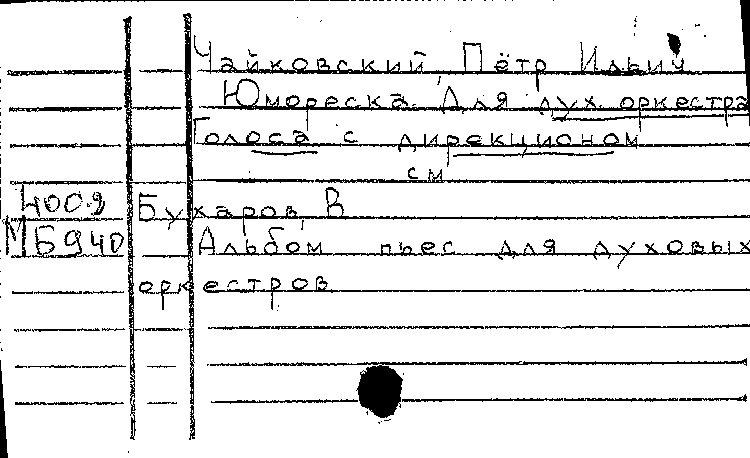 Чайковский, Пётр Ильич
Юмореска. Для дух. оркестра
Голоса с дирекционом
см
4009 Бухаров, В
МБ940 Альбом пьес для духовых
оркестров